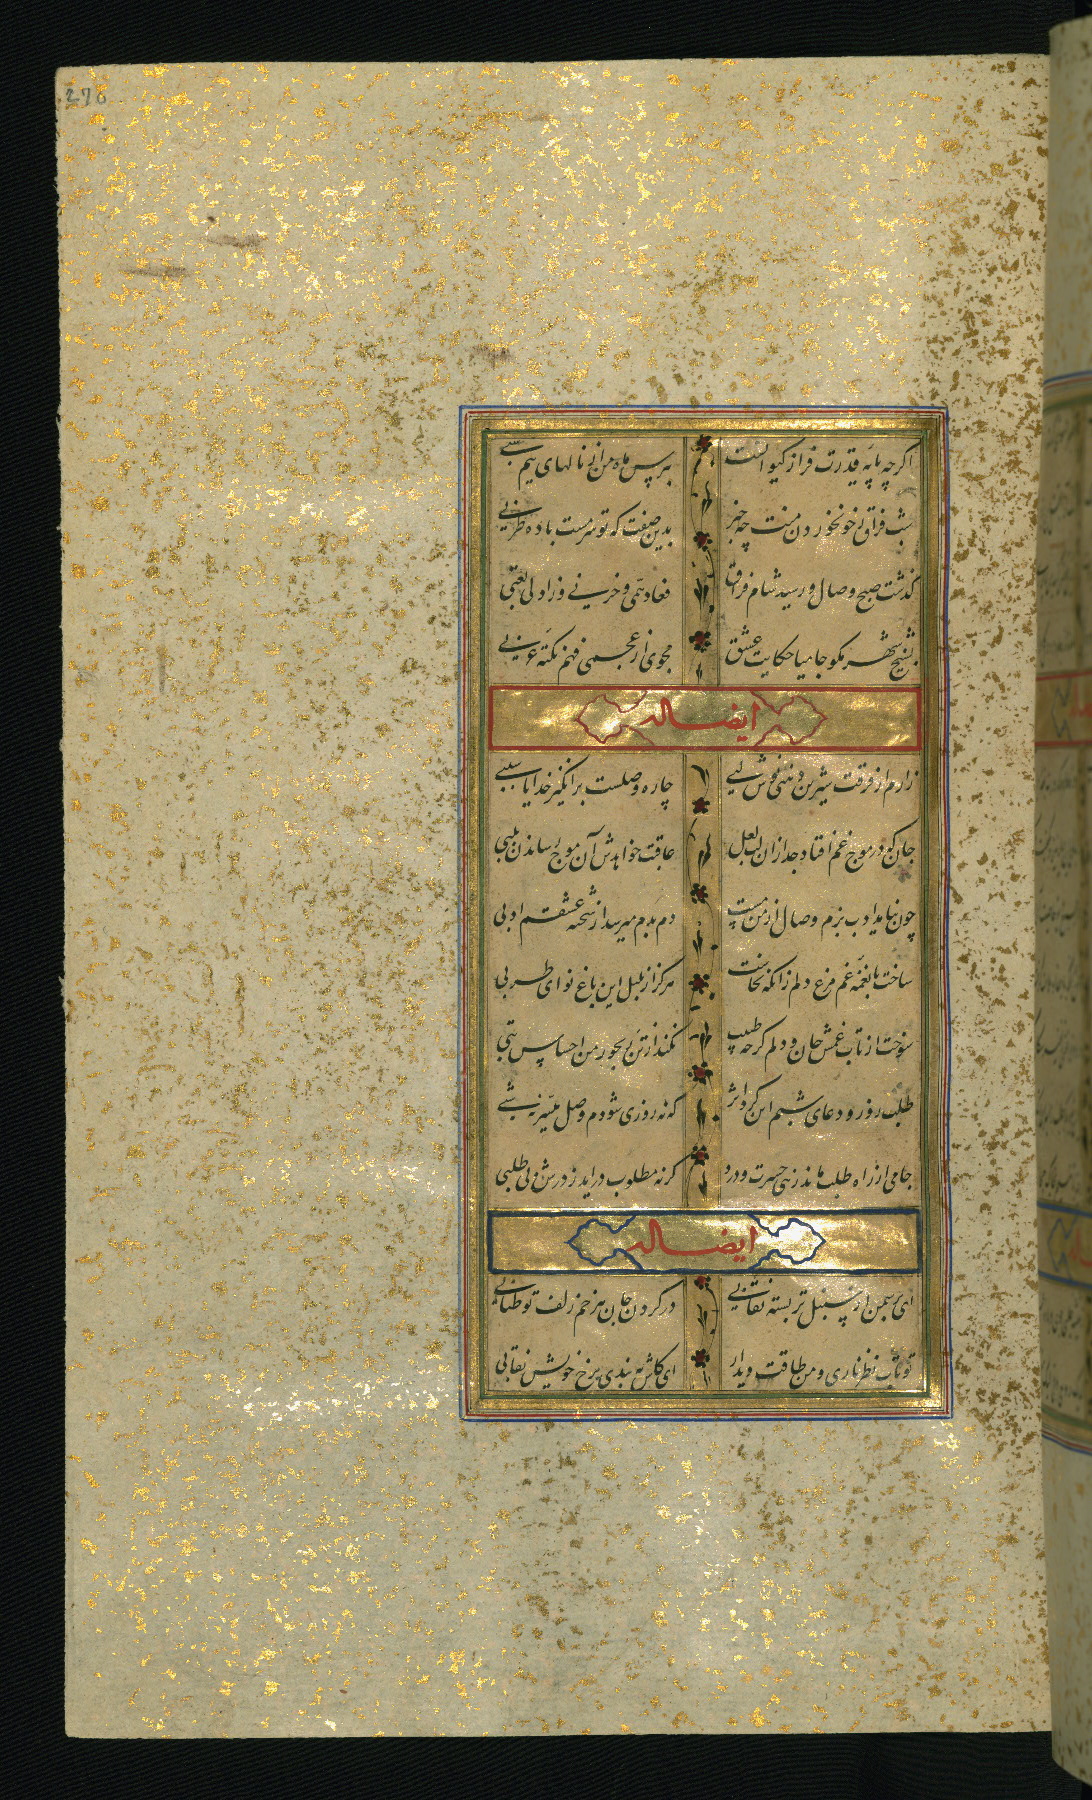 270
اگرچه پایه قدرت فراز کیوانست بپرس ماه من از نالهای نیم شبی
شب فراق ز خونخوردن منت چه خبر بدین صفت که تو سرمست باده طربی
گذشت صبح وصال و رسید شام فراق
بشیخ شهر مگو جامیا حکایت عشق مجوی از عجمی فهم نکته عربی
ایضا له
زارم از فرقت شیرین دهنی نوش لبی چاره وصلست برانگیز خدایا سببی
جان که در موج غم افتاد جدا زان لب لعل عاقبت خواهدش آن موج رساندن بلبی
چون نیاید ادب بزم وصال از من مست دم بدم میرسد از شحنه عشقم ادبی
ساخت با نغمه غم مرغ دلم زانکه نخاست هرگز از بلبل این باغ نوای طربی
سوخت از تاب غمش جان و دلم گرچه طبیب نکند از تن رنجور من احساس تبی
طلب روز و دعای شبم این کرد اثر که نه روزی شودم وصل میسر نه شبی
جامی از راه طلب ماند ز بس حسرت و درد گر نه مطلوب دراید ز درش بی طلبی
ایضا له
ای بر سمن از سنبل تر بسته نقابی در گردن جان هر خم زلف تو طنابی
تو تاب نظر ناری و من طاقت دیدار ای کاش ببندی برخ خویش نقابی